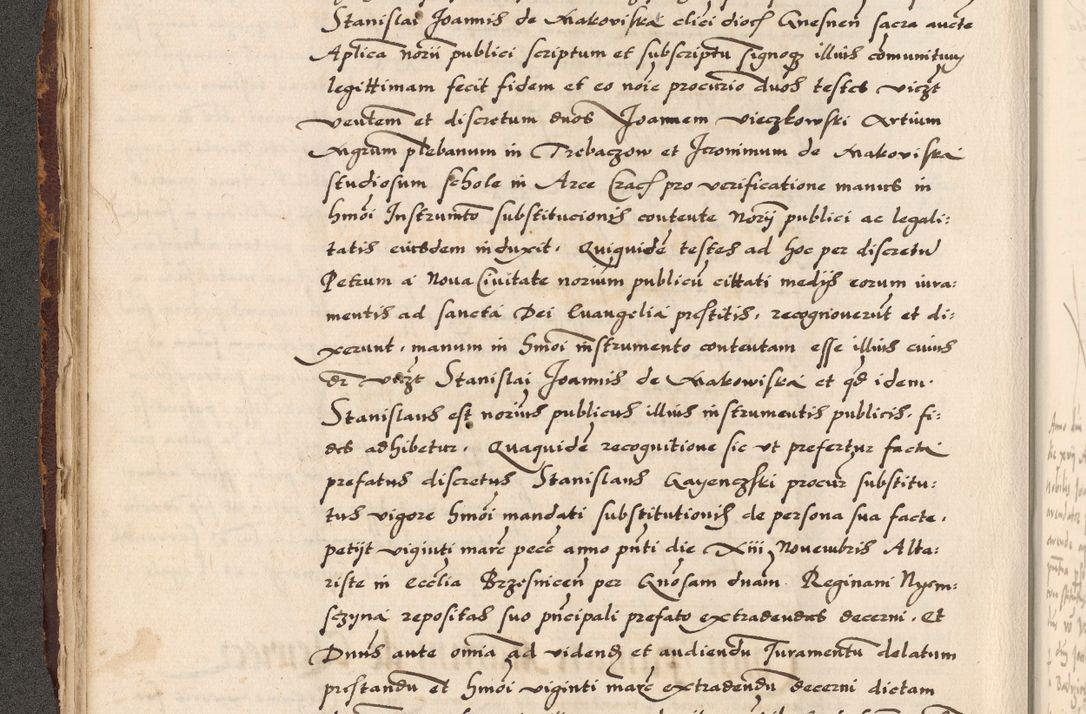 Stanislai Joannis de Makoviska clici dioc Gnesnen sacra aucte
Aplica norii publici scriptum et subscriptu signoqz illius comunitum
legittimam fecit fidem et eo noie procurio duos testes viczt
ventem et discretum dnos Joannem vieczkowski Artium
Mgrum plebanum in Trebaczow et Jeronimum de Makoviska
studiosum schole in Arce Crac pro verificatione manus in
hmoi Instrumto substitucionis contente Norij publici ac legali:
tatis eiusdem induxit. Quiquide testes ad hoc per discretu
Petrum a Nova Civitate norium publicu cittati medijs eorum iura:
mentis ad sancta Dei Evangelia prestitis, recognoverut et di:
xerunt, manum in hmoi instrumento contentam esse illius cuius
dr viczt Stanislai Joannis de Makowiska et qd idem.
Stanislaus est norius publicus illius instrumentis publicis, fi:
des adhibetur. Quaquide recognitione sic ut prefertur facta
prefatus discretus Stanislaus Gayenczski procur substitu:
tus vigore hmoi mandati substitutionis de persona sua facte,
petijt viginti marc pecc anno pnti die Xiii Novembris Alta:
riste in eccelia Brzesnicen per Gnosam dnam Reginam Nyem:
sczyna repositas suo pncipali prefato extradendas decerni. Et
Dnus ante omia ad videnda et audiendu Juramentu delatum
prestandu et hmoi viginti marc extradendu decerni dictam